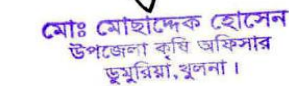 মোঃ মোছাদ্দেক হোসেন
উপজেলা কৃষি অফিসার
ডুমুরিয়া, খুলনা।